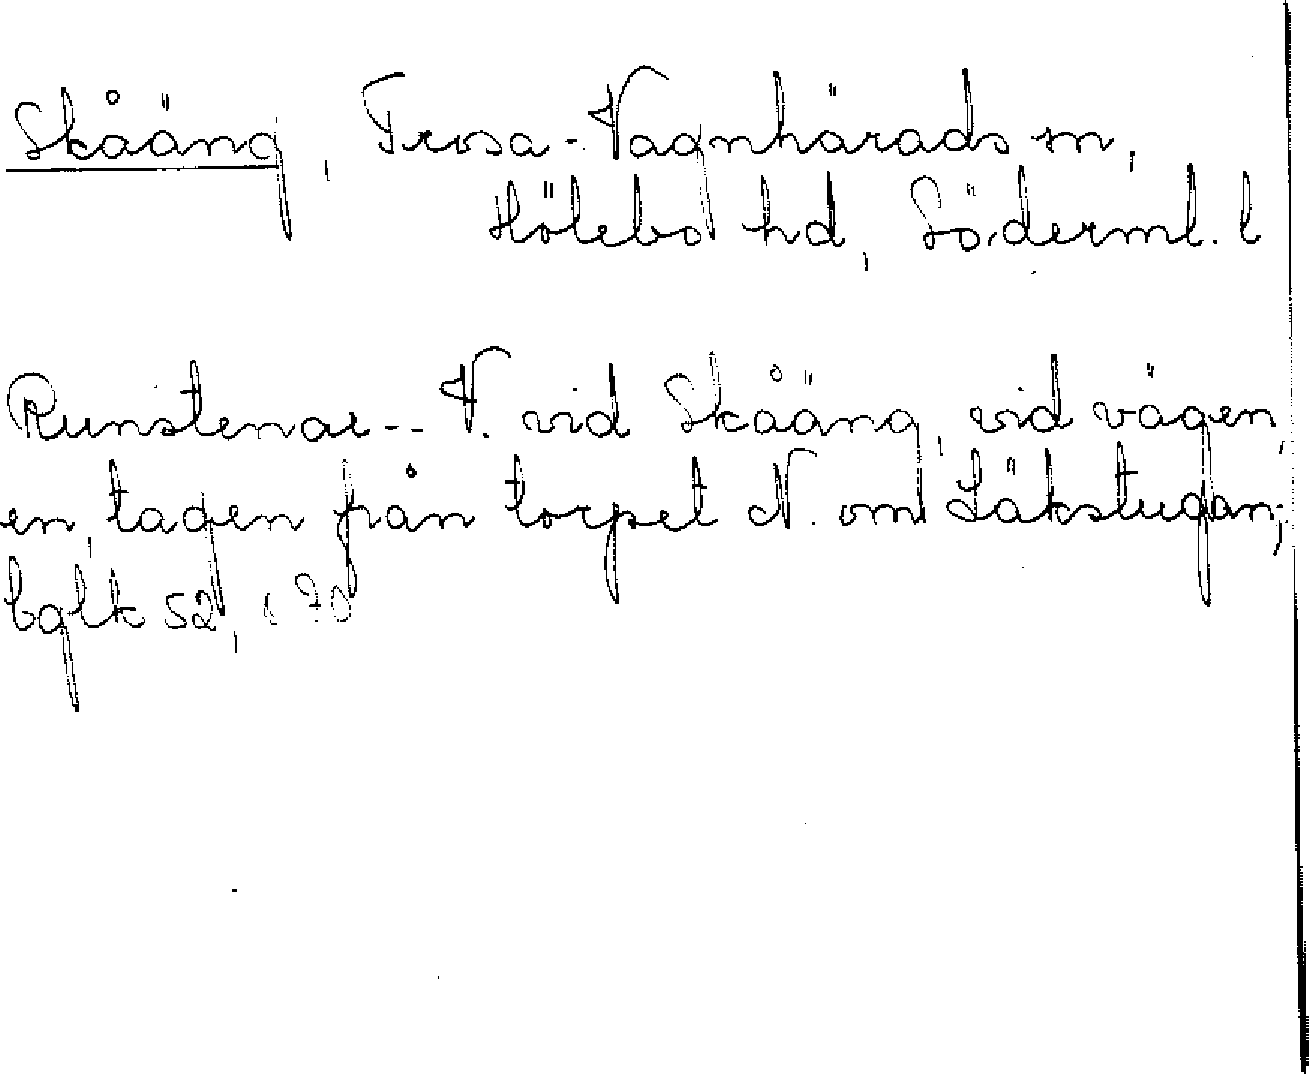 Skåäng, Trosa-Vagnhärads sn,
Hölebo hd, Söderml. l
Runstenar -- V. vid Skåäng, vid vägen,
en, tagen från torpet N. om Läkstugan;
bglk 52, s 70